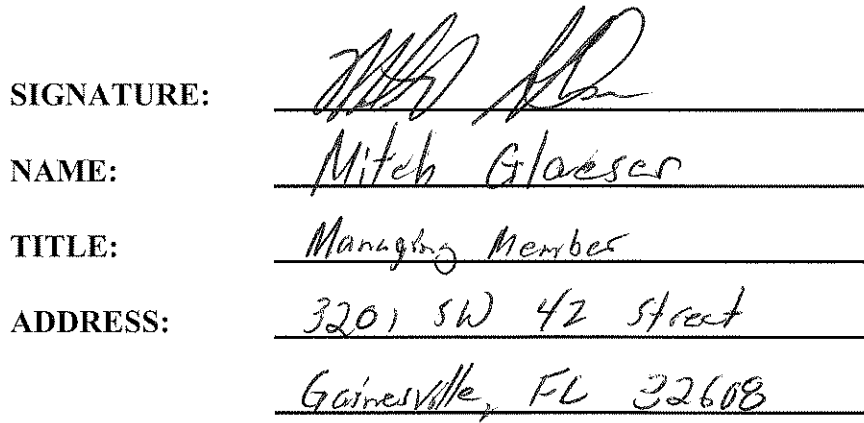 SIGNATURE:
NAME: Mitch Glaeser
TITLE: Managing Member
ADDRESS: 3201 SW 42 Street
Gainesville, FL 32608